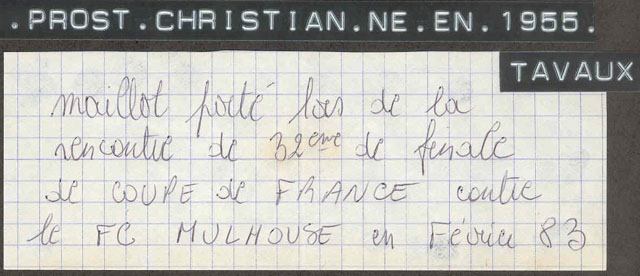 .PROST.CHRISTIAN.NE.EN.1955.
TAVAUX
maillot porté lors de la
rencontre de 32ème de finale
de COUPE de FRANCE contre
le FC MULHOUSE en Février 83